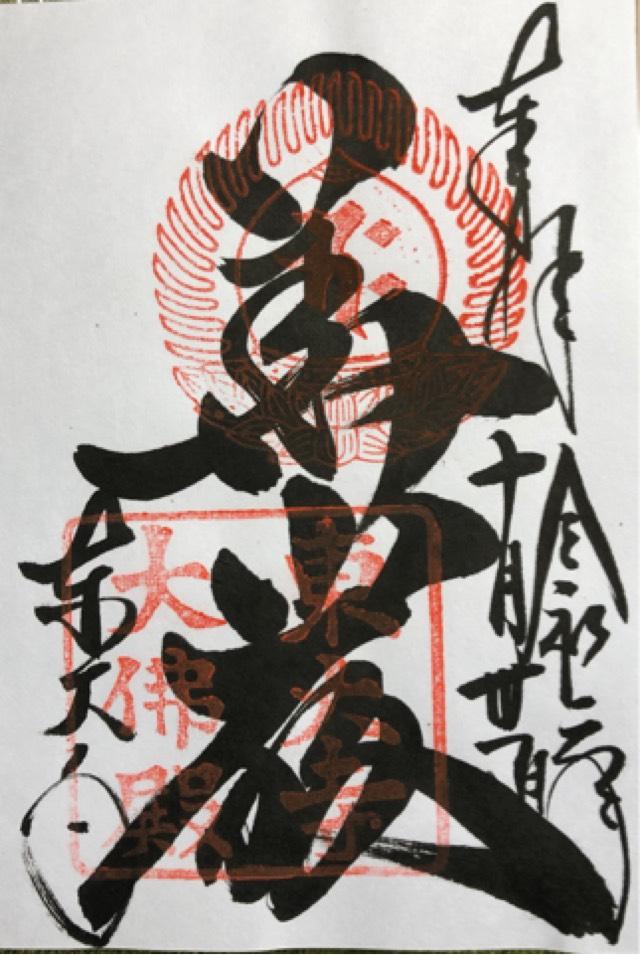 奉拝
令和元年
十月廿一日
華厳
東大寺
東大寺
大佛殿